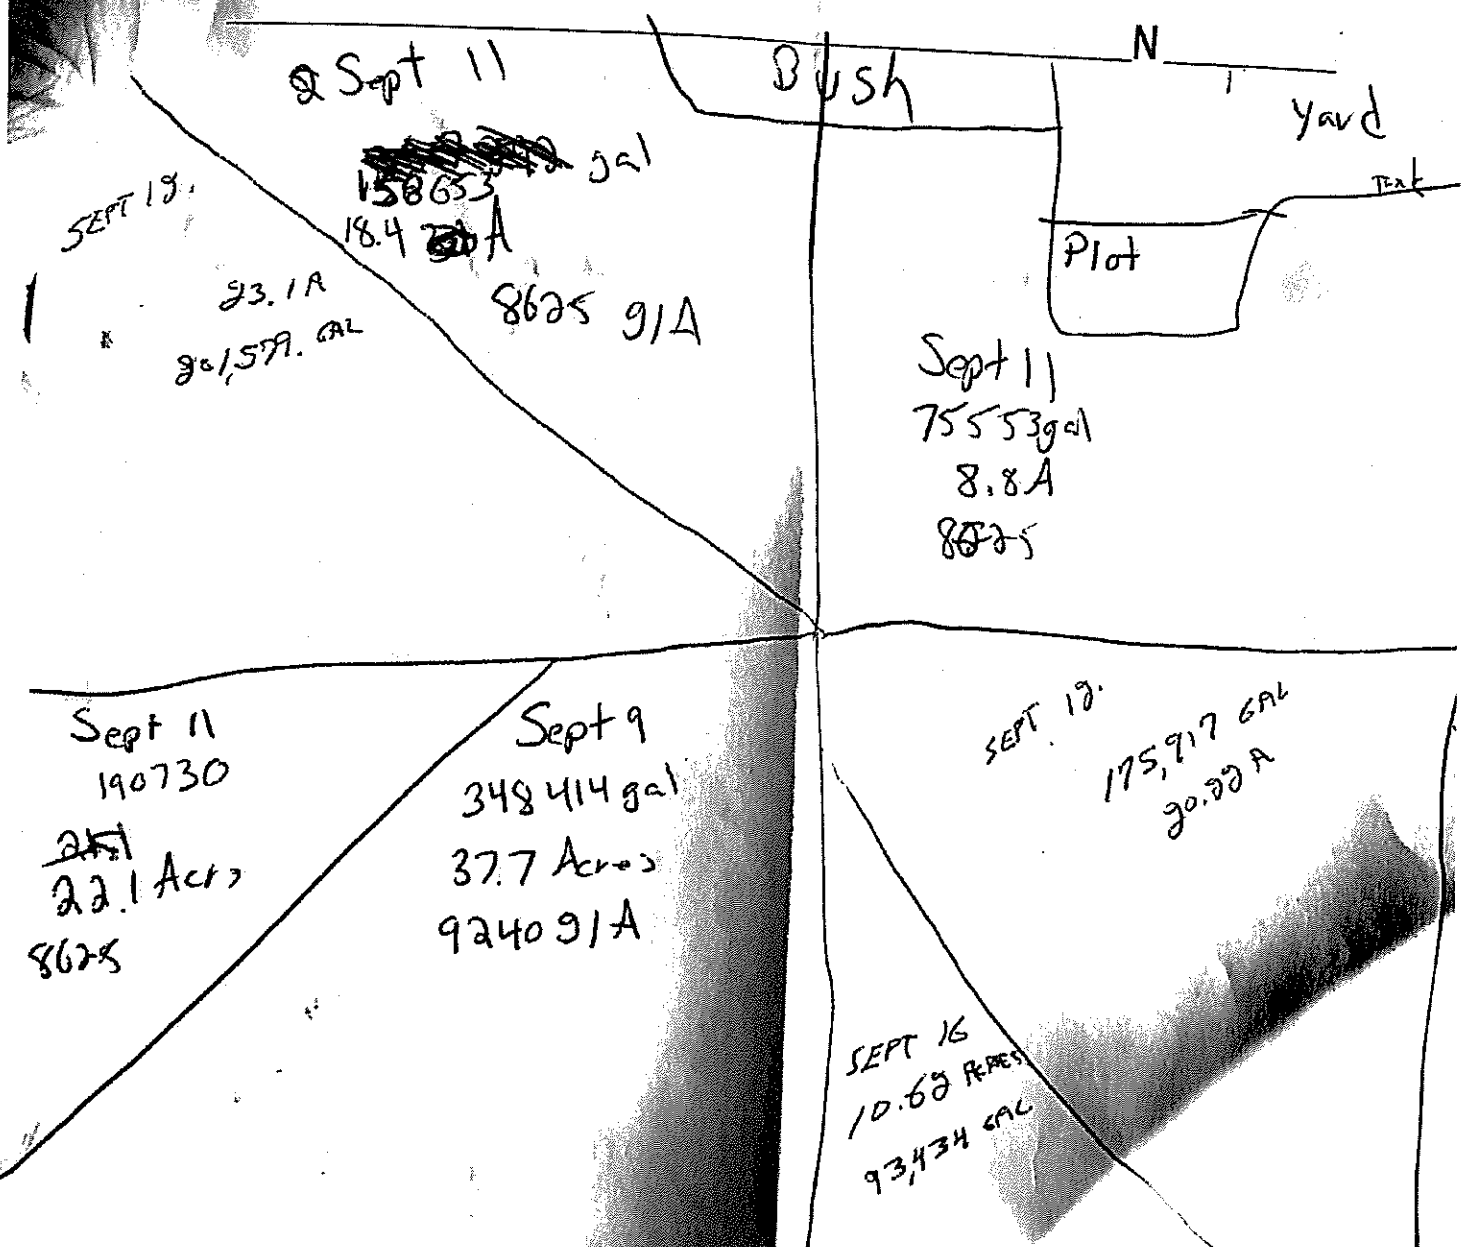 N
Bush
Yard
Plot
Sept 11
gal
158653
18.4 A
8625 g/A
SEPT 12.
23.1 A
201,579. GAL
Sept 11
75553gal
8.8 A
8625
Sept 11
190730
22.1 Acrs
8625
Sept 9
348414 gal
37.7 Acres
9240 g/A
SEPT. 12.
175,917 GAL
20.22 A
SEPT 16
10.62 ACRES
93,434 GAL